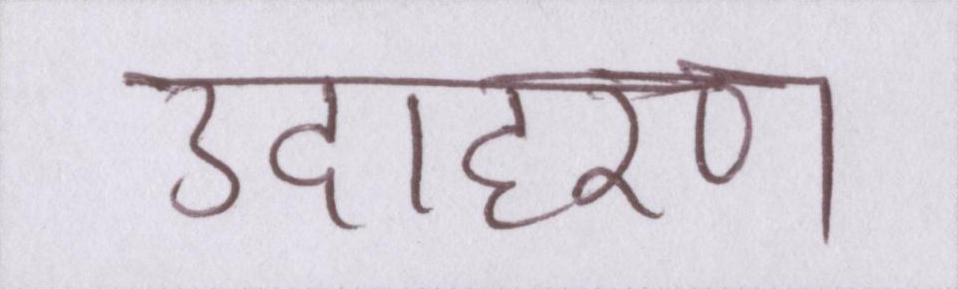 उदाहरण